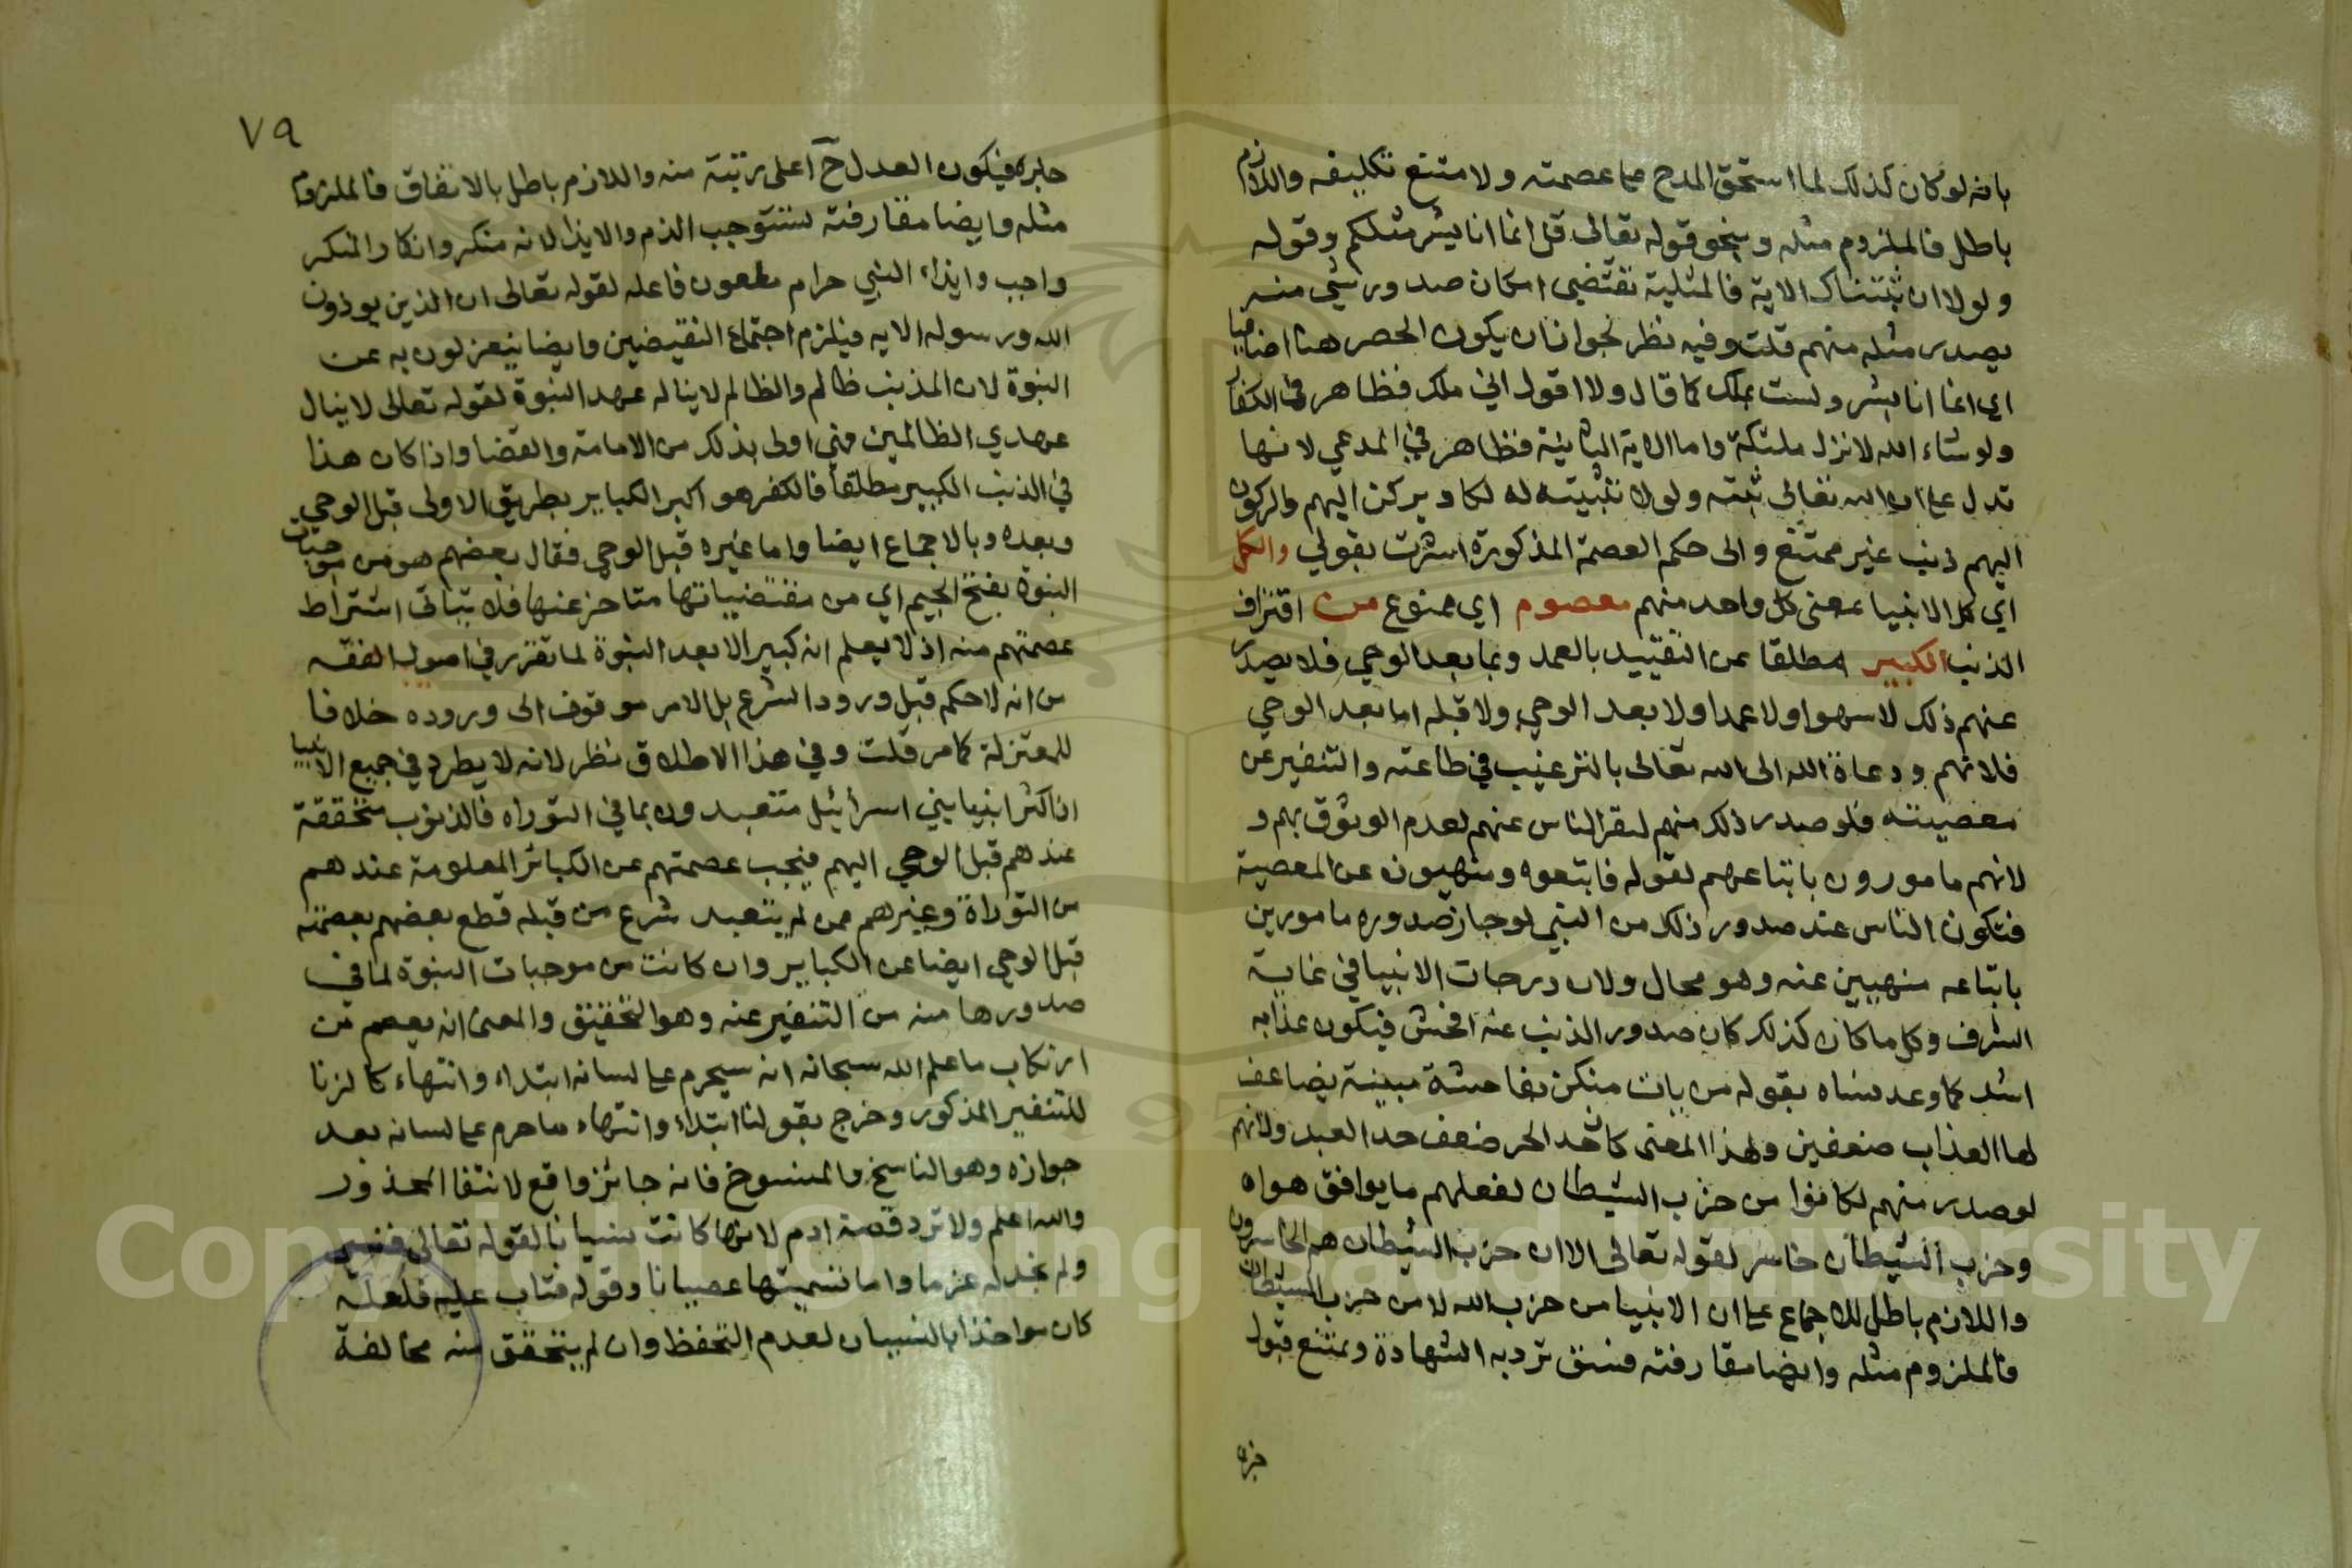 بانه لو كان كذلك لما استحق المدح على عصمته ولا متنع تكليفه واللازم
باطل فالملزوم مثله وبنحو قوله تعالى قل انما انا بشر مثلكم وقوله
ولولا ان ثبتناك الاية فالمثلية تقتضي امكان صدور شي منه
يصدر مثله منهم قلت وفيه نظر لجواز ان يكون الحصر هنا اضافيا
اي انما انا بشر ولست بملك كما قال ولا اقول اني ملك فظاهر في الكفار
ولو شاء الله لانزل ملئكة واما الاية الثانية فظاهر في المدعي لانها
تدل على ان الله تعالى ثبته ولولا تثبيته له لكاد يركن اليهم والركون
اليهم ذنب غير ممتنع والى حكم العصمة المذكورة اشرت بقولي والكل
اي كل الانبيا بمعنى كل واحد منهم معصوم اي ممنوع من اقتراف
الذنب الكبير مطلقا عن التقييد بالعمد وبما بعد الوحي فلا يصدر
عنهم ذلك لا سهوا ولا عمدا ولا بعد الوحي ولا قبله اما بعد الوحي
فلانهم دعاة الله الى الله تعالى بالترغيب في طاعته والتنفير عن
معصيته فلو صدر ذلك منهم لنفر الناس عنهم لعدم الوثوق بهم و
لانهم مامورون باتباعهم لقوله فاتبعوه ومنهيون عن المعصية
فتكون الناس عند صدور ذلك من النبي لو جاز صدوره مامورين
باتباعه منهيين عنه وهو محال ولان درجات الانبيا في غاية
الشرف وكل ما كان كذلك كان صدور الذنب عنه افحش فيكون عذابه
اشد كما وعد نساه بقوله من يات منكن بفاحشة مبينة يضاعف
لها العذاب ضعفين ولهذا المعنى كان حد الحر ضعف حد العبد ولانهم
لو صدر منهم لكانوا من حزب الشيطان لفعلهم ما يوافق هواه
وحزب الشيطان خاسر لقوله تعالى الا ان حزب الشيطان هم الخاسرون
واللازم باطل للاجماع على ان الانبيا من حزب الله لا من حزب الشيطان
فالملزوم مثله وايضا مقارفته فسق ترد به الشهادة ويمتنع قبول
خبره
٧٩
خبره فيكون العدل ح اعلى رتبة منه واللازم باطل بالاتفاق فالملزوم
مثله وايضا مقارفته تستوجب الذم والايذا لانه منكر وانكار المنكر
واجب وايذاء النبي حرام ملعون فاعله لقوله تعالى ان الذين يوذون
الله ورسوله الايه فيلزم اجتماع النقيضين وايضا ينعزلون به عن
النبوة لان المذنب ظالم والظالم لا يناله عهد النبوة لقوله تعالى لا ينال
عهدي الظالمين فهي اولى بذلك من الامامة والقضا واذا كان هذا
في الذنب الكبير مطلقا فالكفر هو اكبر الكباير بطريق الاولى قبل الوحي
وبعده وبالاجماع ايضا واما غيره قبل الوحي فقال بعضهم هو من موجبات
النبوة بفتح الجيم اي من مقتضياتها متاخر عنها فلا يتاتى اشتراط
عصمتهم منه اذ لا يعلم انه كبير الا بعد النبوة لما تقرر في اصول الفقه
من انه لا حكم قبل ورود الشرع بل الامر موقوف الى وروده خلافا
للمعتزلة كما مر قلت وفي هذا الاطلاق نظر لانه لا يطرد في جميع الانبيا
اذ اكثر انبيا بني اسرائيل متعبدون بما في التوراه فالذنوب متحققة
عندهم قبل الوحي اليهم فيجب عصمتهم عن الكبائر المعلومة عندهم
من التوراة وغيرهم ممن لم يتعبد شرع من قبله قطع بعضهم بعصمته
قبل الوحي ايضا عن الكباير وان كانت من موجبات النبوة لما في
صدورها منه من التنفير عنه وهو التحقيق والمعنى انه يعصم من
ارتكاب ما علم الله سبحانه انه سيحرم على لسانه ابتداء وانتهاء كالزنا
للتنفير المذكور وخرج بقولنا ابتداء وانتهاء ما حرم على لسانه بعد
جوازه وهو الناسخ والمنسوخ فانه جائز واقع لانتفا المحذور
والله اعلم ولا ترد قصة ادم لانها كانت نسيانا لقوله تعالى فنسي
ولم نجد له عزما واما تسميتها عصيانا وقوله فتاب عليه فلعله
كان مواخذا بالنسيان لعدم التحفظ وان لم يتحقق منه مخالفة
Copyright © King Saud University